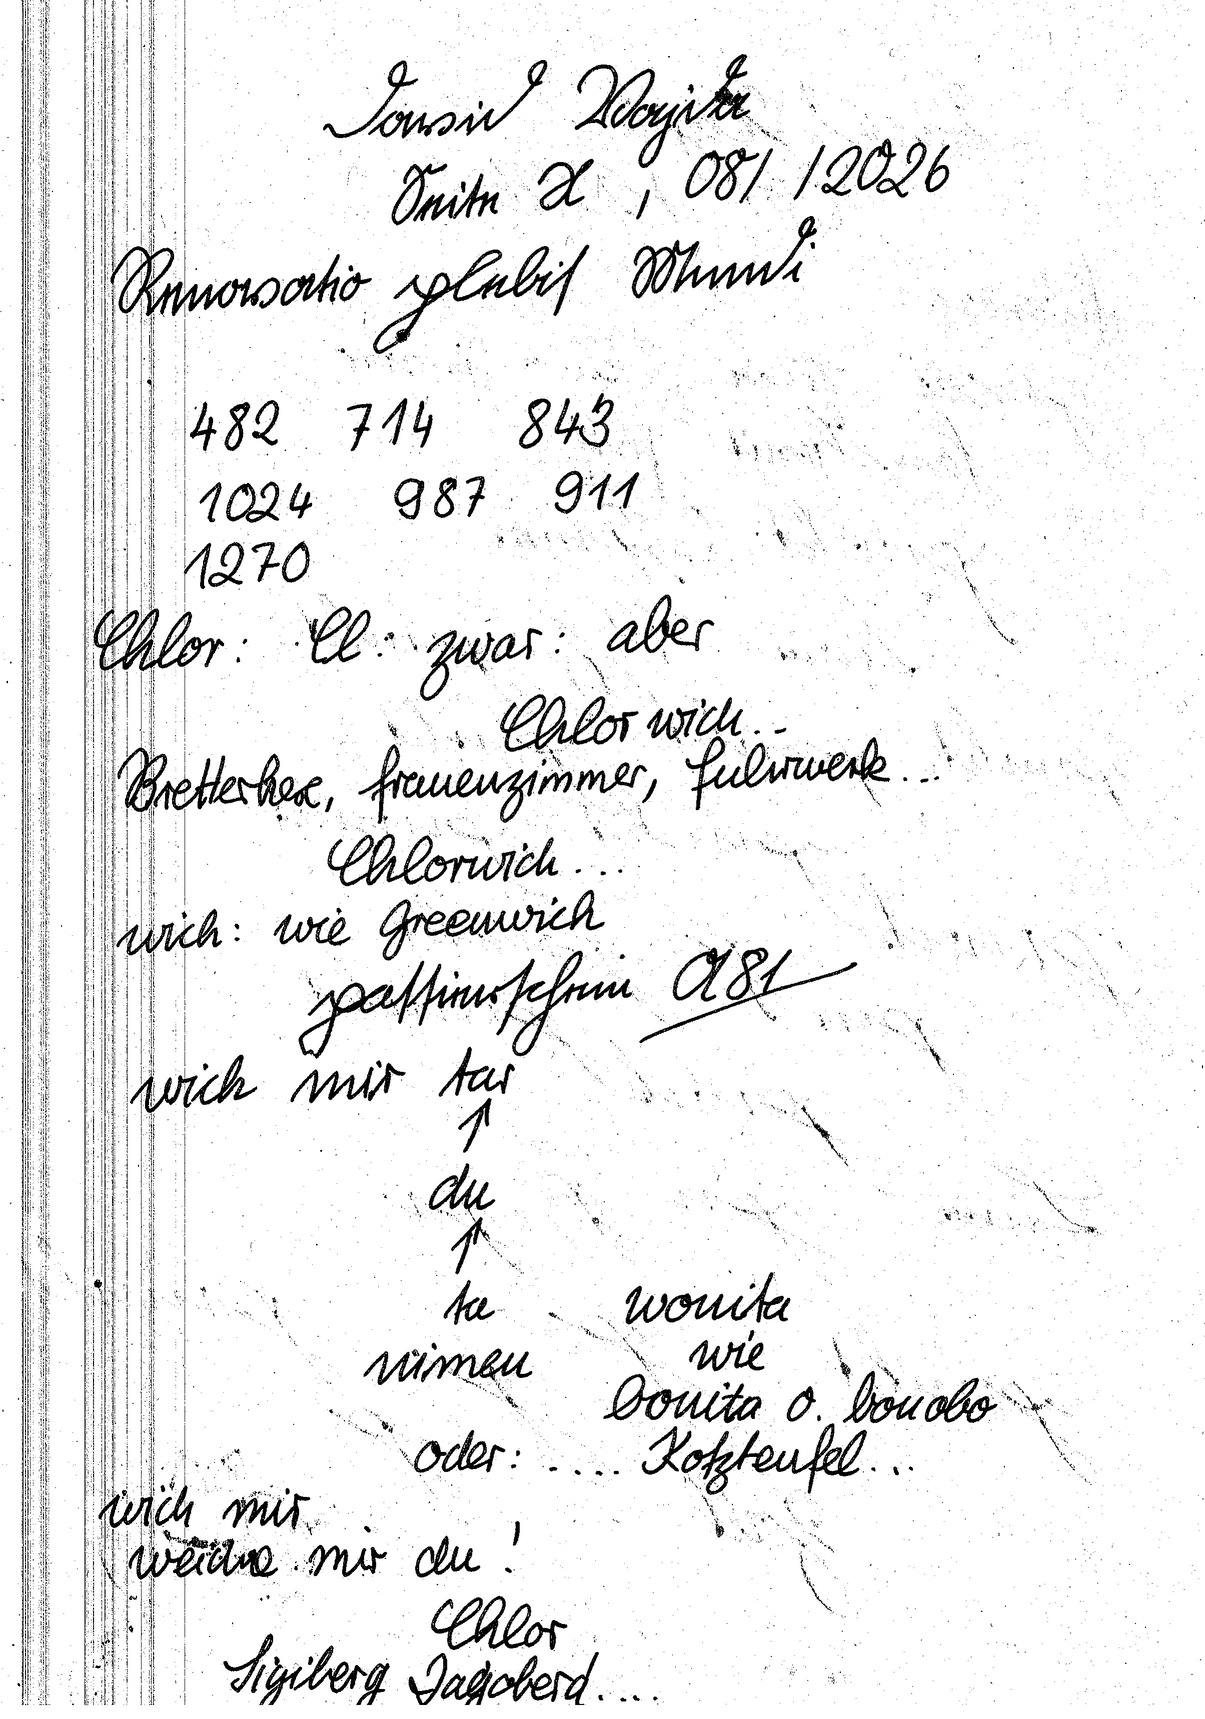 David Wajda
Seite X, 081 / 2026
Renovatio plebis Mundi
482 714 843
1024 987 911
1270
Chlor: Cl: zwar: aber
Chlorwich..
Bretterhexe, frauenzimmer, fuhrwerk...
Chlorwich...
wich: wie Greenwich
passierschein A81
wich mir tar
↑
du
↑
ta wonita
nimen wie
bonita o. bonobo
oder: .... Kotzteufel...
wich mir
weiche mir du!
Chlor
Sigiberg Dagoberd....